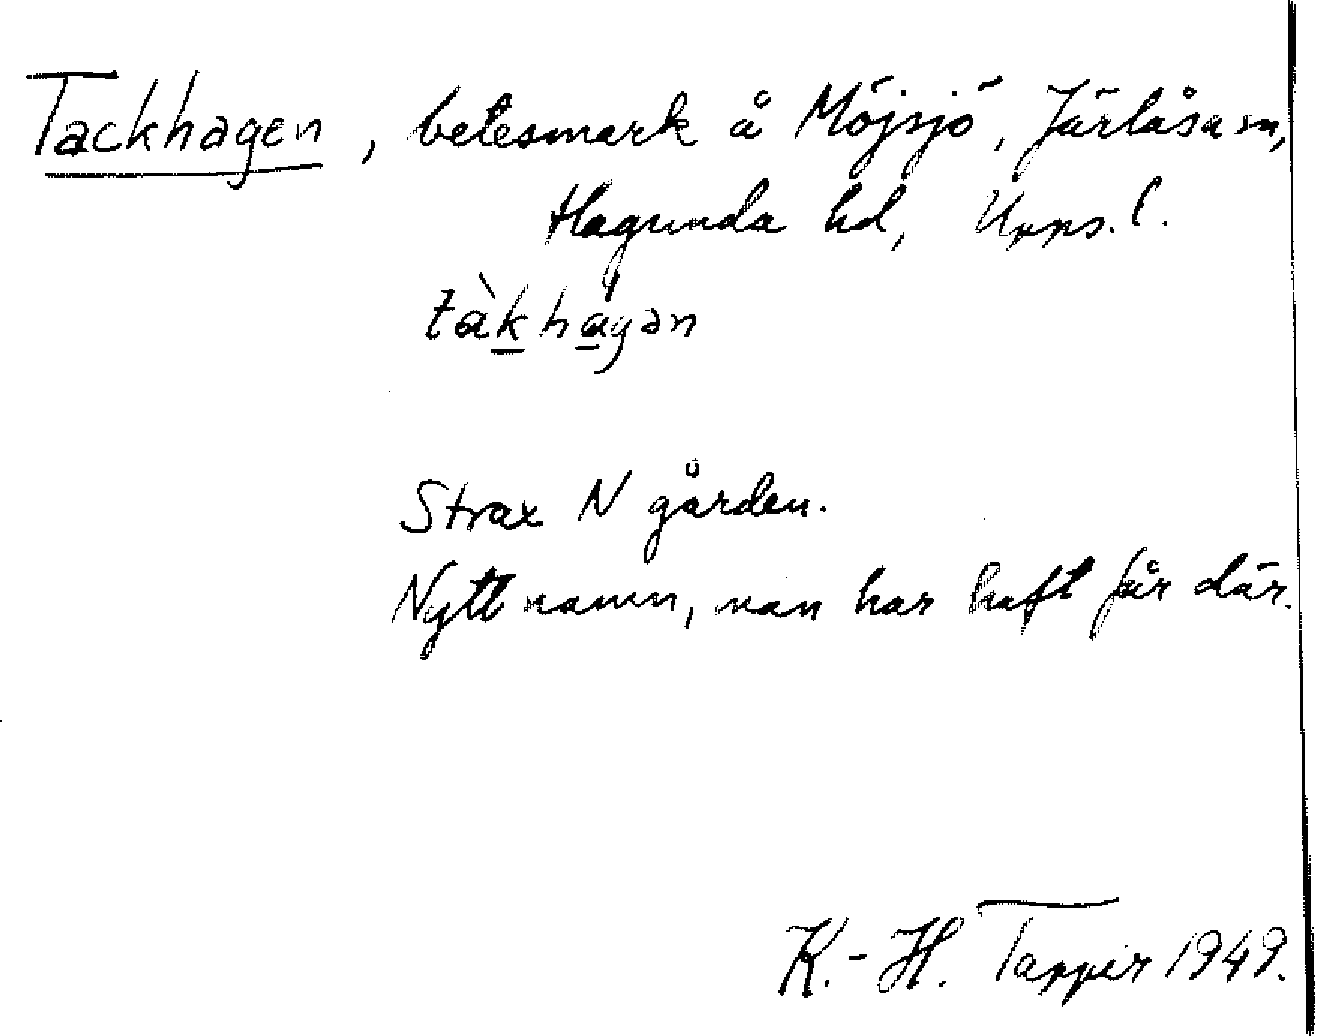 Tackhagen, betesmark å Möjsjö, Järlåsa sn,
Hagunda hd, Upps. l.
tàkhágən
Strax N gården.
Nytt namn, man har haft får där.
K.-H. Tappér 1949.